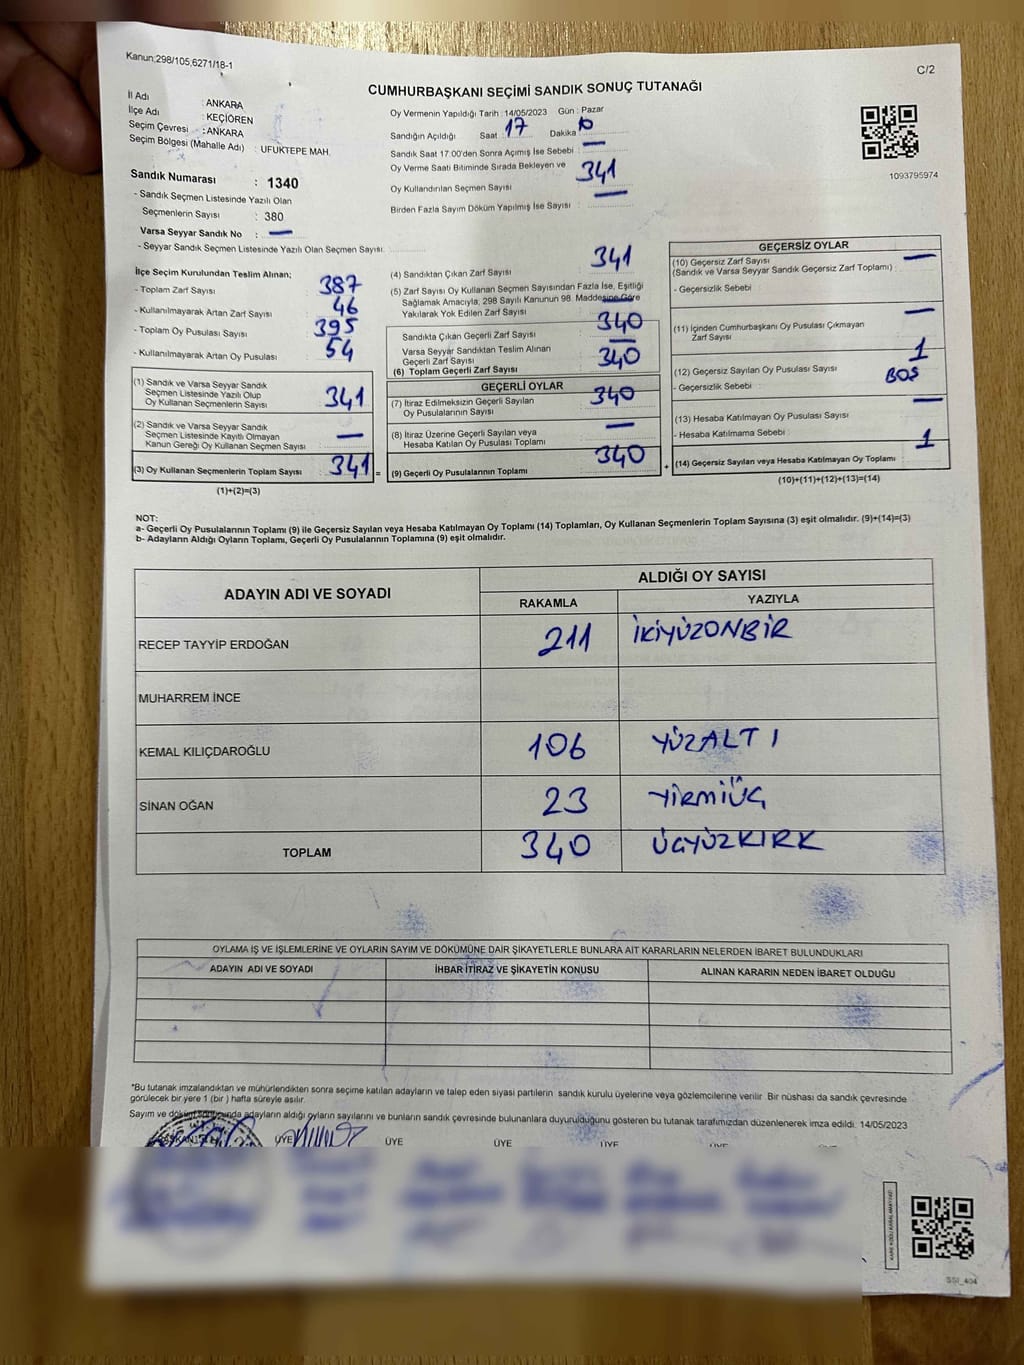 Kanun;298/105,6271/18-1
C/2
CUMHURBAŞKANI SEÇİMİ SANDIK SONUÇ TUTANAĞI
İl Adı : ANKARA
İlçe Adı : KEÇİÖREN
Seçim Çevresi : ANKARA
Seçim Bölgesi (Mahalle Adı) : UFUKTEPE MAH.
Sandık Numarası : 1340
- Sandık Seçmen Listesinde Yazılı Olan
Seçmenlerin Sayısı : 380
Varsa Seyyar Sandık No : —
- Seyyar Sandık Seçmen Listesinde Yazılı Olan Seçmen Sayısı:
Oy Vermenin Yapıldığı Tarih : 14/05/2023 Gün : Pazar
Sandığın Açıldığı Saat : 17 Dakika : 10
Sandık Saat 17:00'den Sonra Açımış İse Sebebi : —
Oy Verme Saati Bitiminde Sırada Bekleyen ve
Oy Kullandırılan Seçmen Sayısı 341
Birden Fazla Sayım Döküm Yapılmış İse Sayısı : —
1093795974
İlçe Seçim Kurulundan Teslim Alınan;
- Toplam Zarf Sayısı 387
- Kullanılmayarak Artan Zarf Sayısı 46
- Toplam Oy Pusulası Sayısı 395
- Kullanılmayarak Artan Oy Pusulası 54
(1) Sandık ve Varsa Seyyar Sandık
Seçmen Listesinde Yazılı Olup
Oy Kullanan Seçmenlerin Sayısı 341
(2) Sandık ve Varsa Seyyar Sandık
Seçmen Listesinde Kayıtlı Olmayan
Kanun Gereği Oy Kullanan Seçmen Sayısı —
(3) Oy Kullanan Seçmenlerin Toplam Sayısı 341 =
(1)+(2)=(3)
(4) Sandıktan Çıkan Zarf Sayısı 341
(5) Zarf Sayısı Oy Kullanan Seçmen Sayısından Fazla İse, Eşitliği
Sağlamak Amacıyla, 298 Sayılı Kanunun 98. Maddesine Göre
Yakılarak Yok Edilen Zarf Sayısı —
Sandıkta Çıkan Geçerli Zarf Sayısı 340
Varsa Seyyar Sandıktan Teslim Alınan
Geçerli Zarf Sayısı —
(6) Toplam Geçerli Zarf Sayısı 340
GEÇERLİ OYLAR
(7) İtiraz Edilmeksizin Geçerli Sayılan
Oy Pusulalarının Sayısı 340
(8) İtiraz Üzerine Geçerli Sayılan veya
Hesaba Katılan Oy Pusulası Toplamı —
(9) Geçerli Oy Pusulalarının Toplamı 340 +
GEÇERSİZ OYLAR
(10) Geçersiz Zarf Sayısı —
(Sandık ve Varsa Seyyar Sandık Geçersiz Zarf Toplamı) :
- Geçersizlik Sebebi :
(11) İçinden Cumhurbaşkanı Oy Pusulası Çıkmayan
Zarf Sayısı —
(12) Geçersiz Sayılan Oy Pusulası Sayısı 1
- Geçersizlik Sebebi : BOŞ
(13) Hesaba Katılmayan Oy Pusulası Sayısı —
- Hesaba Katılmama Sebebi :
(14) Geçersiz Sayılan veya Hesaba Katılmayan Oy Toplamı 1
(10)+(11)+(12)+(13)=(14)
NOT:
a- Geçerli Oy Pusulalarının Toplamı (9) ile Geçersiz Sayılan veya Hesaba Katılmayan Oy Toplamı (14) Toplamları, Oy Kullanan Seçmenlerin Toplam Sayısına (3) eşit olmalıdır. (9)+(14)=(3)
b- Adayların Aldığı Oyların Toplamı, Geçerli Oy Pusulalarının Toplamına (9) eşit olmalıdır.
ADAYIN ADI VE SOYADI
ALDIĞI OY SAYISI
RAKAMLA YAZIYLA
RECEP TAYYİP ERDOĞAN 211 İKİYÜZONBİR
MUHARREM İNCE
KEMAL KILIÇDAROĞLU 106 YÜZALTI
SİNAN OĞAN 23 YİRMİÜÇ
TOPLAM 340 ÜÇYÜZKIRK
OYLAMA İŞ VE İŞLEMLERİNE VE OYLARIN SAYIM VE DÖKÜMÜNE DAİR ŞİKAYETLERLE BUNLARA AİT KARARLARIN NELERDEN İBARET BULUNDUKLARI
ADAYIN ADI VE SOYADI İHBAR İTİRAZ VE ŞİKAYETİN KONUSU ALINAN KARARIN NEDEN İBARET OLDUĞU
*Bu tutanak imzalandıktan ve mühürlendikten sonra seçime katılan adayların ve talep eden siyasi partilerin sandık kurulu üyelerine veya gözlemcilerine verilir. Bir nüshası da sandık çevresinde
görülecek bir yere 1 (bir) hafta süreyle asılır.
Sayım ve döküm sonucunda adayların aldığı oyların sayılarını ve bunların sandık çevresinde bulunanlara duyurulduğunu gösteren bu tutanak tarafımızdan düzenlenerek imza edildi. 14/05/2023
BAŞKAN ÜYE ÜYE ÜYE ÜYE
SSI_404